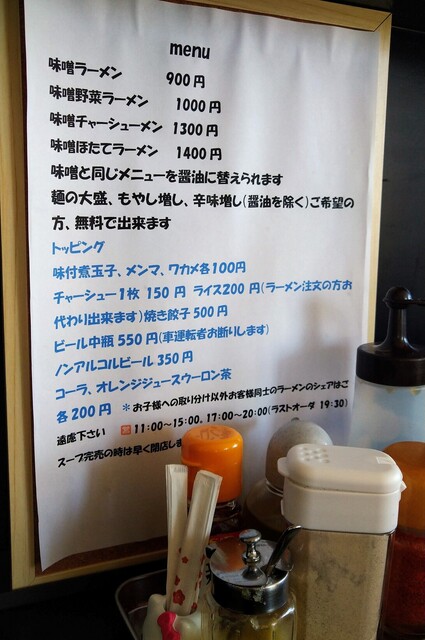 menu
味噌ラーメン 900円
味噌野菜ラーメン 1000円
味噌チャーシューメン 1300円
味噌ほたてラーメン 1400円
味噌と同じメニューを醤油に替えられます
麺の大盛、もやし増し、辛味増し(醤油を除く)ご希望の
方、無料で出来ます
トッピング
味付煮玉子、メンマ、ワカメ各100円
チャーシュー1枚 150円 ライス200円(ラーメン注文の方お
代わり出来ます)焼き餃子500円
ビール中瓶550円(車運転者お断りします)
ノンアルコルビール350円
コーラ、オレンジジュースウーロン茶
各200円 *お子様への取り分け以外お客様同士のラーメンのシェアはご
遠慮下さい 11:00~15:00.17:00~20:00(ラストオーダ 19:30)
スープ完売の時は早く閉店しま